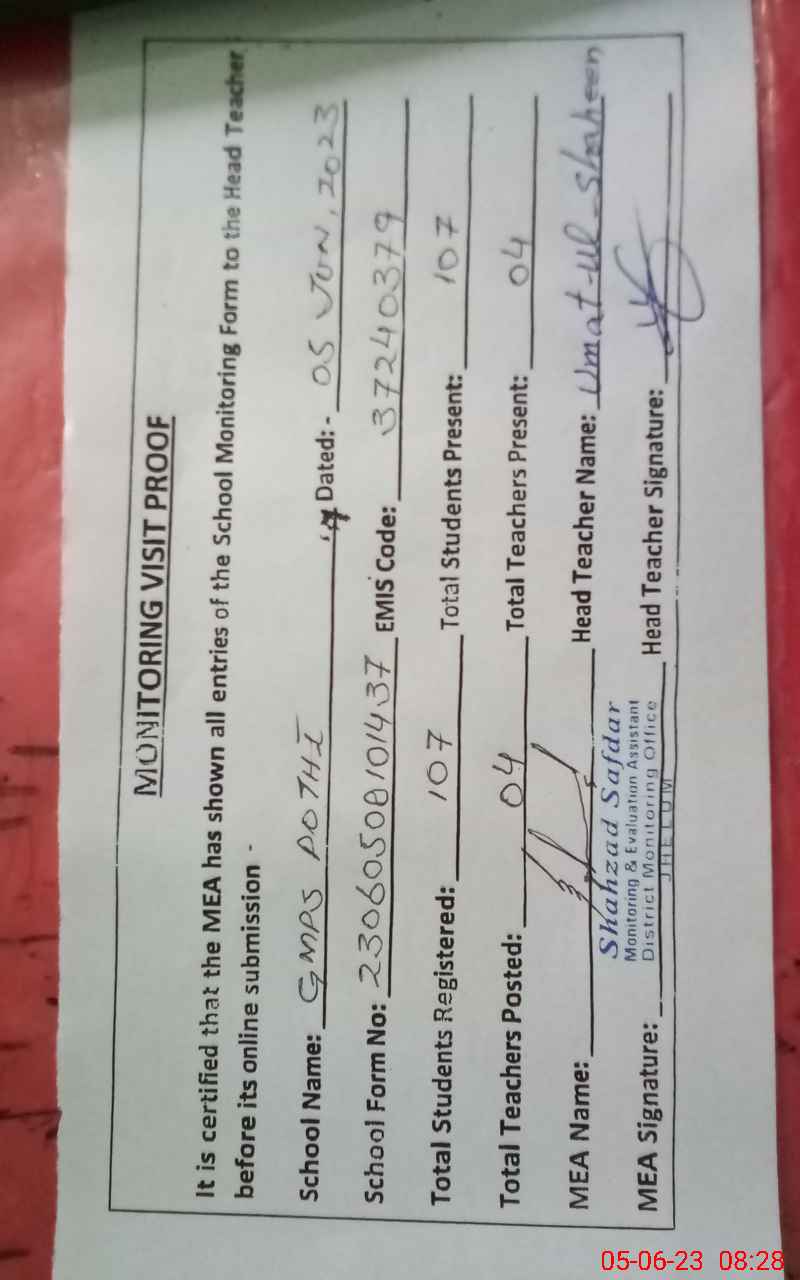 MONITORING VISIT PROOF
It is certified that the MEA has shown all entries of the School Monitoring Form to the Head Teacher
before its online submission -
School Name: GMPS POTHI Dated: - 05 JUN, 2023
School Form No: 23060508101437 EMIS Code: 37240379
Total Students Registered: 107 Total Students Present: 107
Total Teachers Posted: 04 Total Teachers Present: 04
MEA Name: Head Teacher Name: Umat-ul-Shaheen
Shahzad Safdar
Monitoring & Evaluation Assistant
District Monitoring Office
JHELUM
MEA Signature: Head Teacher Signature:
05-06-23 08:28